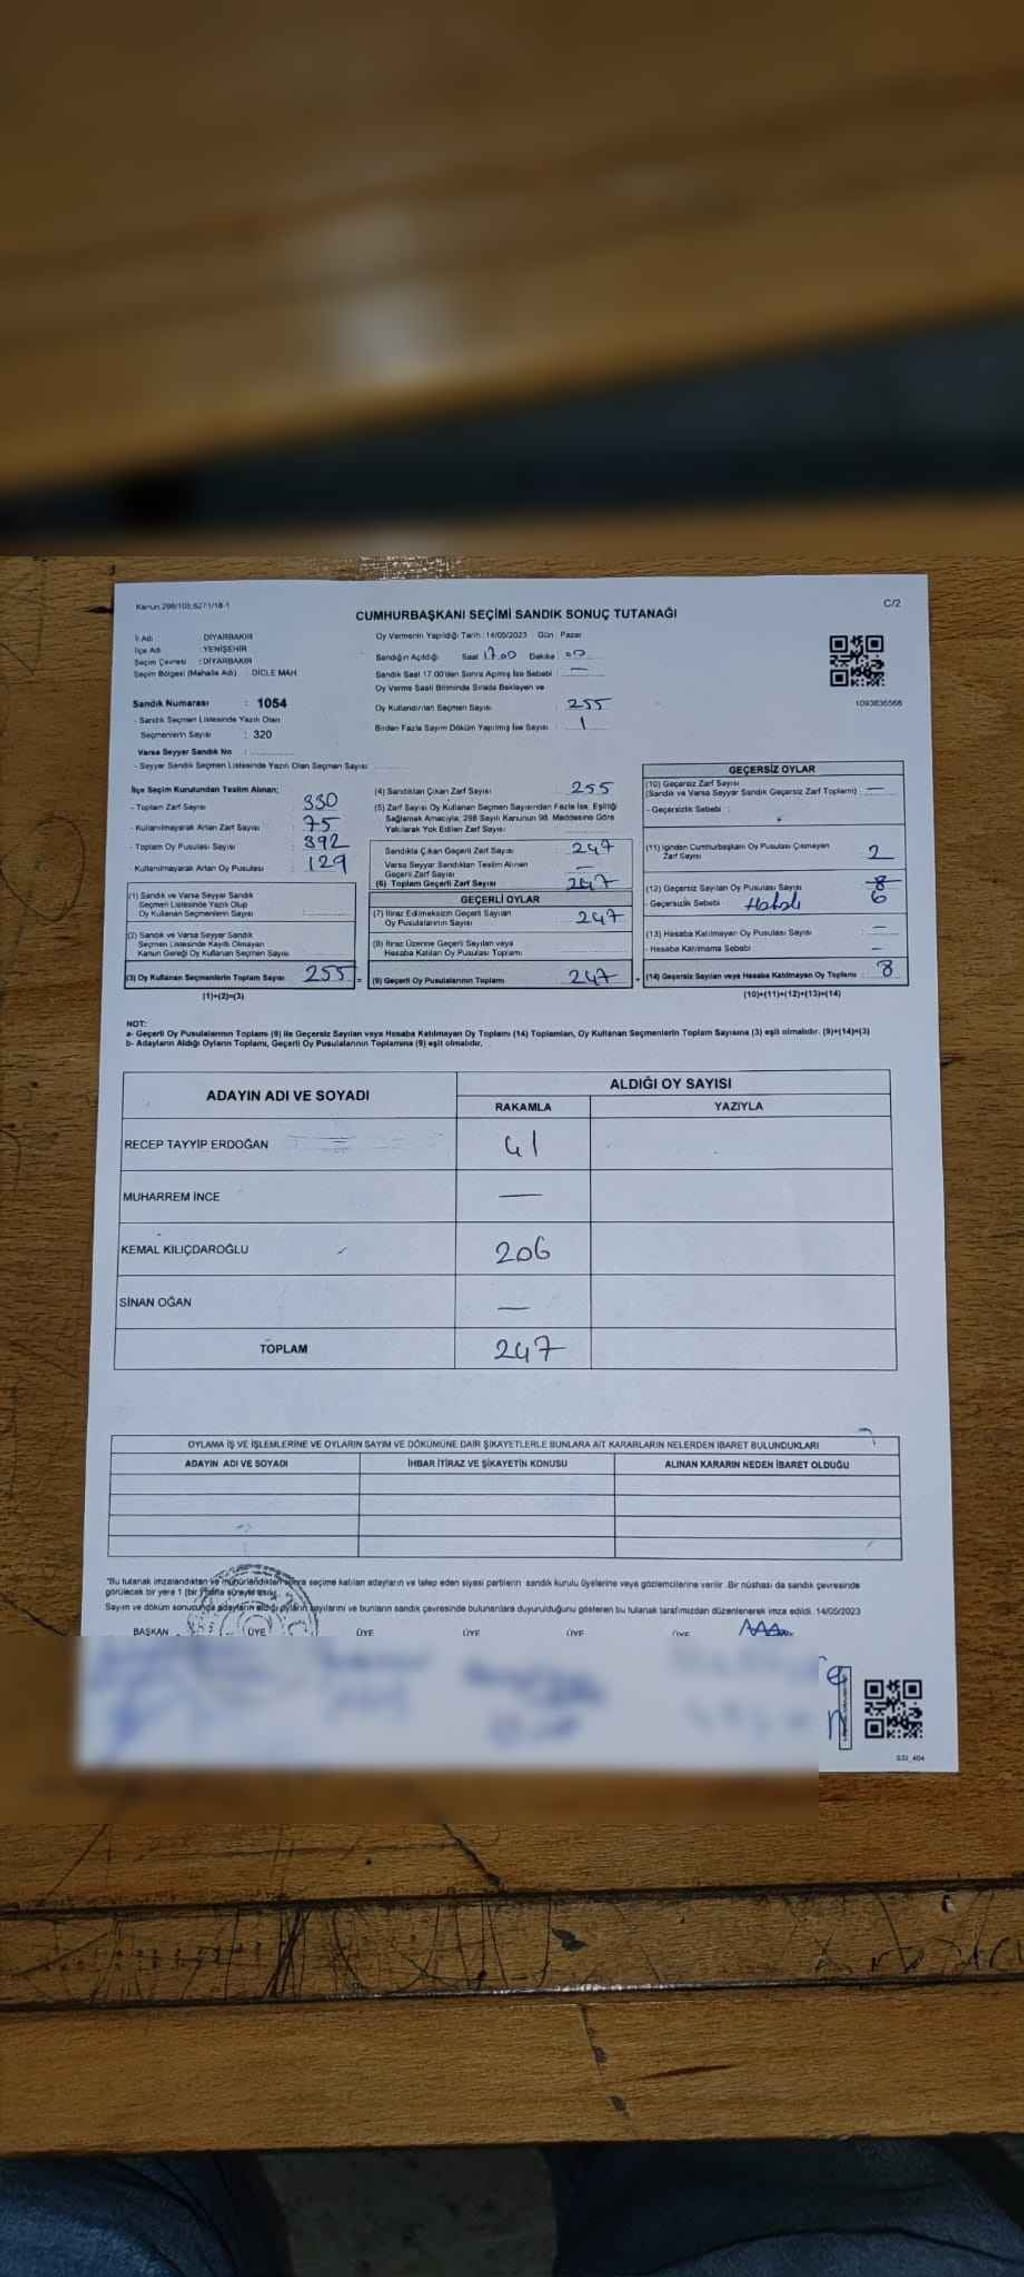 Kanun:298/105;6271/18-1
C/2
CUMHURBAŞKANI SEÇİMİ SANDIK SONUÇ TUTANAĞI
İl Adı : DİYARBAKIR
İlçe Adı : YENİŞEHİR
Seçim Çevresi : DİYARBAKIR
Seçim Bölgesi (Mahalle Adı) : DİCLE MAH
Oy Vermenin Yapıldığı Tarih : 14/05/2023 Gün : Pazar
Sandığın Açıldığı Saat 17.00 Dakika : 00
Sandık Saat 17:00'den Sonra Açılmış İse Sebebi : —
Oy Verme Saati Bitiminde Sırada Bekleyen ve
Oy Kullandırılan Seçmen Sayısı : 255
Birden Fazla Sayım Döküm Yapılmış İse Sayısı : 1
1093836568
Sandık Numarası : 1054
- Sandık Seçmen Listesinde Yazılı Olan
Seçmenlerin Sayısı : 320
Varsa Seyyar Sandık No :
- Seyyar Sandık Seçmen Listesinde Yazılı Olan Seçmen Sayısı
İlçe Seçim Kurulundan Teslim Alınan;
- Toplam Zarf Sayısı : 330
- Kullanılmayarak Artan Zarf Sayısı : 75
- Toplam Oy Pusulası Sayısı : 392
Kullanılmayarak Artan Oy Pusulası : 129
(1) Sandık ve Varsa Seyyar Sandık
Seçmen Listesinde Yazılı Olup
Oy Kullanan Seçmenlerin Sayısı
(2) Sandık ve Varsa Seyyar Sandık
Seçmen Listesinde Kayıtlı Olmayan
Kanun Gereği Oy Kullanan Seçmen Sayısı
(3) Oy Kullanan Seçmenlerin Toplam Sayısı 255 =
(1)+(2)=(3)
(4) Sandıktan Çıkan Zarf Sayısı : 255
(5) Zarf Sayısı Oy Kullanan Seçmen Sayısından Fazla İse, Eşitliği
Sağlamak Amacıyla, 298 Sayılı Kanunun 98. Maddesine Göre
Yakılarak Yok Edilen Zarf Sayısı :
Sandıkta Çıkan Geçerli Zarf Sayısı : 247
Varsa Seyyar Sandıktan Teslim Alınan
Geçerli Zarf Sayısı : —
(6) Toplam Geçerli Zarf Sayısı : 247
GEÇERLİ OYLAR
(7) İtiraz Edilmeksizin Geçerli Sayılan
Oy Pusulalarının Sayısı : 247
(8) İtiraz Üzerine Geçerli Sayılan veya
Hesaba Katılan Oy Pusulası Toplamı
(9) Geçerli Oy Pusulalarının Toplamı 247 +
GEÇERSİZ OYLAR
(10) Geçersiz Zarf Sayısı
(Sandık ve Varsa Seyyar Sandık Geçersiz Zarf Toplamı) : —
- Geçersizlik Sebebi :
(11) İçinden Cumhurbaşkanı Oy Pusulası Çıkmayan
Zarf Sayısı : 2
(12) Geçersiz Sayılan Oy Pusulası Sayısı : 8 6
- Geçersizlik Sebebi : Hatalı
(13) Hesaba Katılmayan Oy Pusulası Sayısı : —
- Hesaba Katılmama Sebebi : —
(14) Geçersiz Sayılan veya Hesaba Katılmayan Oy Toplamı : 8
(10)+(11)+(12)+(13)=(14)
NOT:
a- Geçerli Oy Pusulalarının Toplamı (9) ile Geçersiz Sayılan veya Hesaba Katılmayan Oy Toplamı (14) Toplamları, Oy Kullanan Seçmenlerin Toplam Sayısına (3) eşit olmalıdır. (9)+(14)=(3)
b- Adayların Aldığı Oyların Toplamı, Geçerli Oy Pusulalarının Toplamına (9) eşit olmalıdır.
ADAYIN ADI VE SOYADI
ALDIĞI OY SAYISI
RAKAMLA YAZIYLA
RECEP TAYYİP ERDOĞAN 41
MUHARREM İNCE —
KEMAL KILIÇDAROĞLU 206
SİNAN OĞAN —
TOPLAM 247
OYLAMA İŞ VE İŞLEMLERİNE VE OYLARIN SAYIM VE DÖKÜMÜNE DAİR ŞİKAYETLERLE BUNLARA AİT KARARLARIN NELERDEN İBARET BULUNDUKLARI
ADAYIN ADI VE SOYADI İHBAR İTİRAZ VE ŞİKAYETİN KONUSU ALINAN KARARIN NEDEN İBARET OLDUĞU
"Bu tutanak imzalandıktan ve mühürlendikten sonra seçime katılan adayların ve talep eden siyasi partilerin sandık kurulu üyelerine veya gözlemcilerine verilir. Bir nüshası da sandık çevresinde
görülecek bir yere 1 (bir) hafta süreyle asılır.
Sayım ve döküm sonucunda adayların aldığı oyların sayılarını ve bunların sandık çevresinde bulunanlara duyurulduğunu gösteren bu tutanak tarafımızdan düzenlenerek imza edildi. 14/05/2023
BAŞKAN ÜYE ÜYE ÜYE ÜYE ÜYE